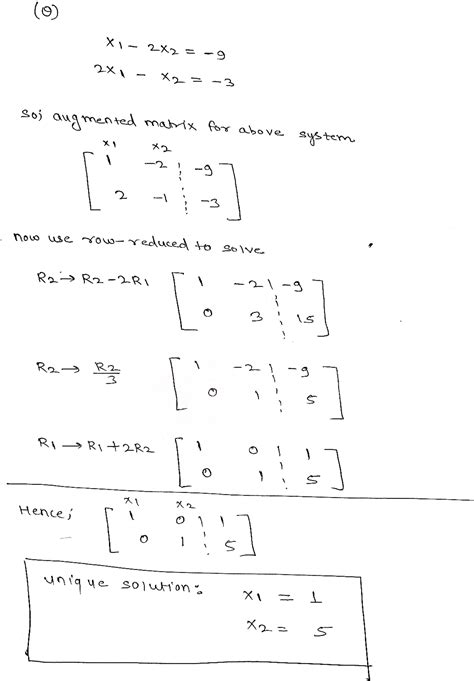 (Q)
x1 - 2x2 = -9
2x1 - x2 = -3
so; augmented matrix for above system
x1 x2
1 -2 -9
2 -1 -3
now use row-reduced to solve
R2 → R2 - 2R1 1 -2 -9
0 3 15
R2 → R2/3 1 -2 -9
0 1 5
R1 → R1 + 2R2 1 0 1
0 1 5
Hence; x1 x2
1 0 1
0 1 5
unique solution: x1 = 1
x2 = 5